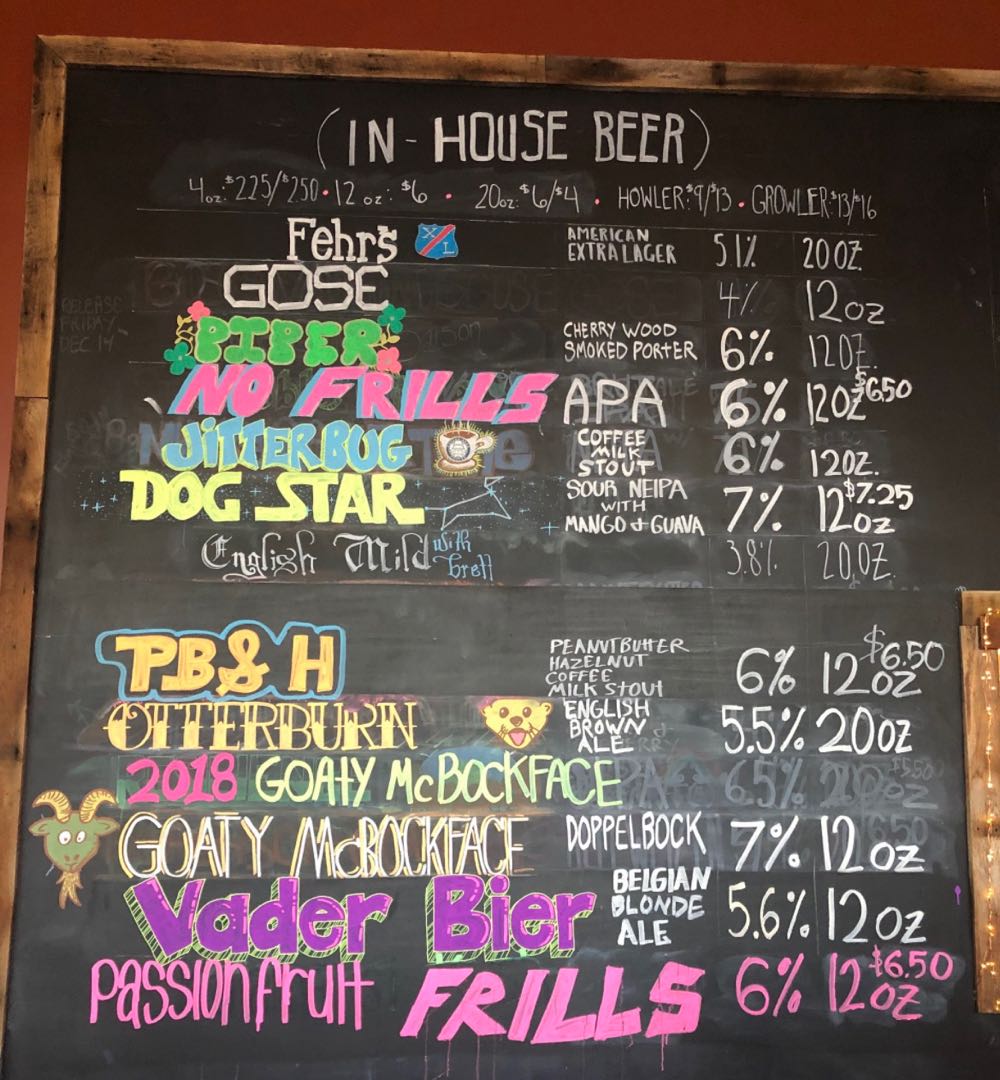 (IN-HOUSE BEER)
4oz:$225/$250 • 12oz: $6 • 20oz: $6/$4 • HOWLER:$9/$13 • GROWLER:$13/$16
Fehr's XL AMERICAN EXTRA LAGER 51% 20OZ.
GOSE 4% 12oz
RELEASE FRIDAY DEC 14
PIPER CHERRY WOOD SMOKED PORTER 6% 12OZ.
NO FRILLS APA 6% 12OZ $6.50
JITTERBUG COFFEE MILK STOUT 6% 12OZ.
DOG STAR SOUR NEIPA WITH MANGO & GUAVA 7% 12oz $7.25
English Mild with brett 3.8% 20OZ.
PB&H PEANUTBUTTER HAZELNUT COFFEE MILK STOUT 6% 12oz $6.50
OTTERBURN ENGLISH BROWN ALE 5.5% 20oz
2018 GOATY McBOCKFACE
GOATY McBOCKFACE DOPPELBOCK 7% 12oz
Vader Bier BELGIAN BLONDE ALE 5.6% 12oz
Passionfruit FRILLS 6% 12oz $6.50